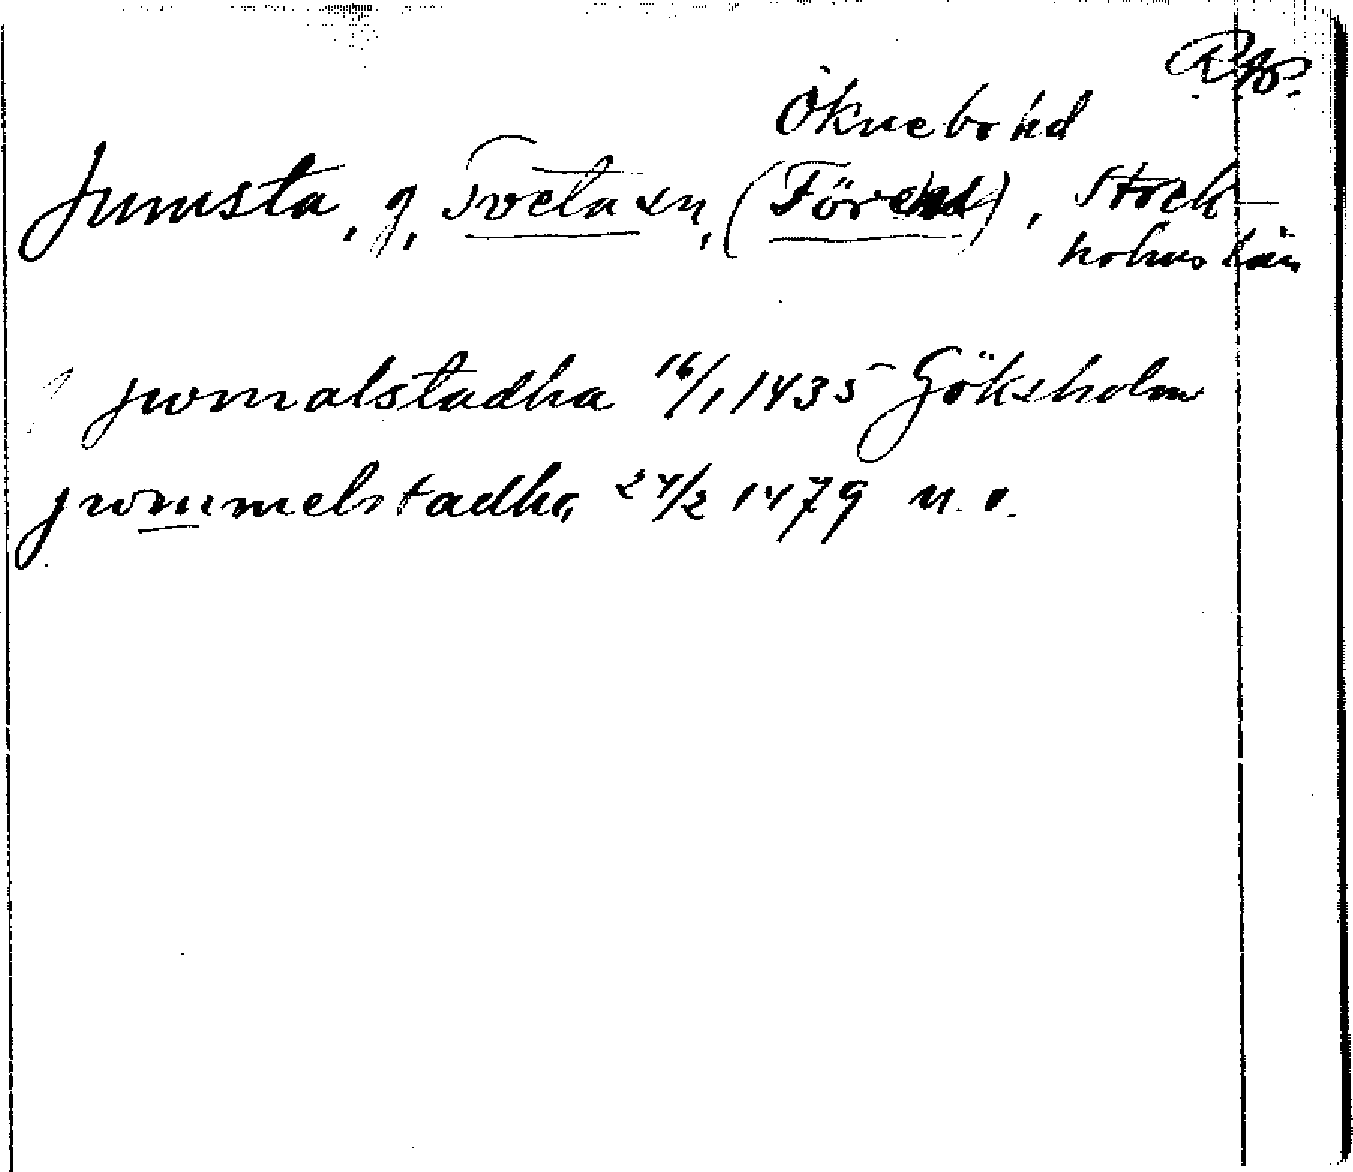 Öknebo hd
Jumsta, g, Tveta sn, (Förens), Stock-
holms län
jwmalstadha 16/1 1435 Göksholm
jwmmelstadhe 24/2 1479 n. o.